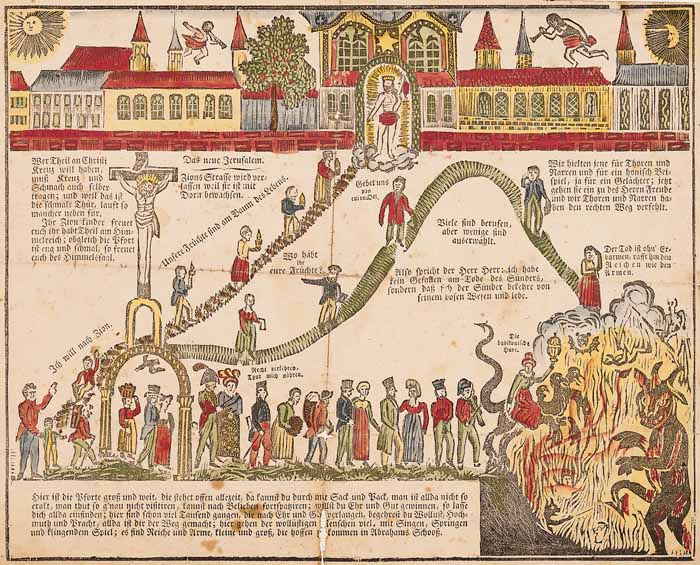 Wer Theil an Christi
Kreuz will haben,
muß Kreuz und
Schmach auch selber
tragen; und weil das ist
die schmale Thür, lauft so
mancher neben für.
Ihr Zion'kinder freuet
euch ihr habt Theil am Him-
melreich; obgleich die Pfort
ist eng und schmal, so freuet
euch des Himmelssaal.
Das neue Jerusalem.
Zions Strasse wird ver-
lassen weil sie ist mit
Dorn bewachsen.
Unsere Früchte sind am Baum des Lebens.
Gehet uns
von
Wo habt
ihr
eure Früchte?
Viele sind berufen,
aber wenige sind
auserwählt.
Also spricht der Herr Herr: ich habe
kein Gefallen am Tode des Sünders,
sondern daß sich der Sünder bekehre von
seinem bösen Wesen und lebe.
Wir hielten jene für Thoren und
Narren und für ein hönisch Bei-
spiel, ja für ein Gelächter; jetzt
gehen sie ein zu des Herren Freude
und wir Thoren und Narren ha-
ben den rechten Weg verfehlt.
Der Tod ist ohn' Er-
barmen; rafft hin den
Reichen wie den
Armen.
Ich will nach Zion.
Recht verkehren,
Thut mich nähren.
Die
babilonische
Hure.
Hier ist die Pforte groß und weit, die stehet offen allezeit, da kannst du durch mit Sack und Pack, man ist allda nicht so
exakt, man thut so g'nau nicht visitiren, kannst nach Belieben fortspatziren; willst du Ehr und Gut gewinnen, so lasse
dich allda einfinden; hier sind schon viel Tausend gangen, die nach Ehr und Geld verlangen, begehrst du Wollust, Hoch-
muth und Pracht, allda ist dir der Weg gemacht; hier gehen der wollüstigen Menschen viel, mit Singen, Springen
und klingendem Spiel; es sind Reiche und Arme, kleine und groß, die hoffen zu kommen in Abrahams Schooß.